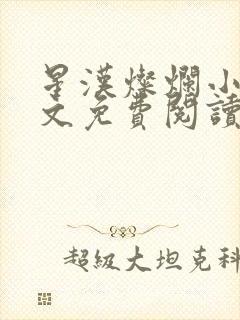 星漢燦爛小
文免費閱讀
超級大坦克科